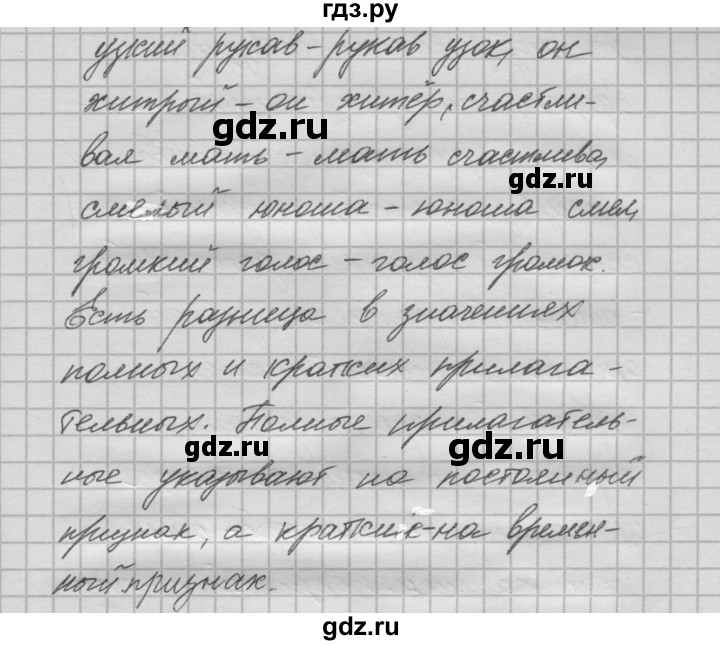 гдз.ру
узкий рукав - рукав узок, он
хитрый - он хитёр, счастли-
gdz.ru
вая мать - мать счастлива,
gdz.ru
смелый юноша - юноша смел,
громкий голос - голос громок.
Есть разница в значениях
gdz.ru
полных и кратких прилага-
тельных. Полные прилагатель-
gdz.ru
gdz.ru
ные указывают на постоянный
признак, а краткие - на времен-
ный признак.
gdz.ru
gdz.ru